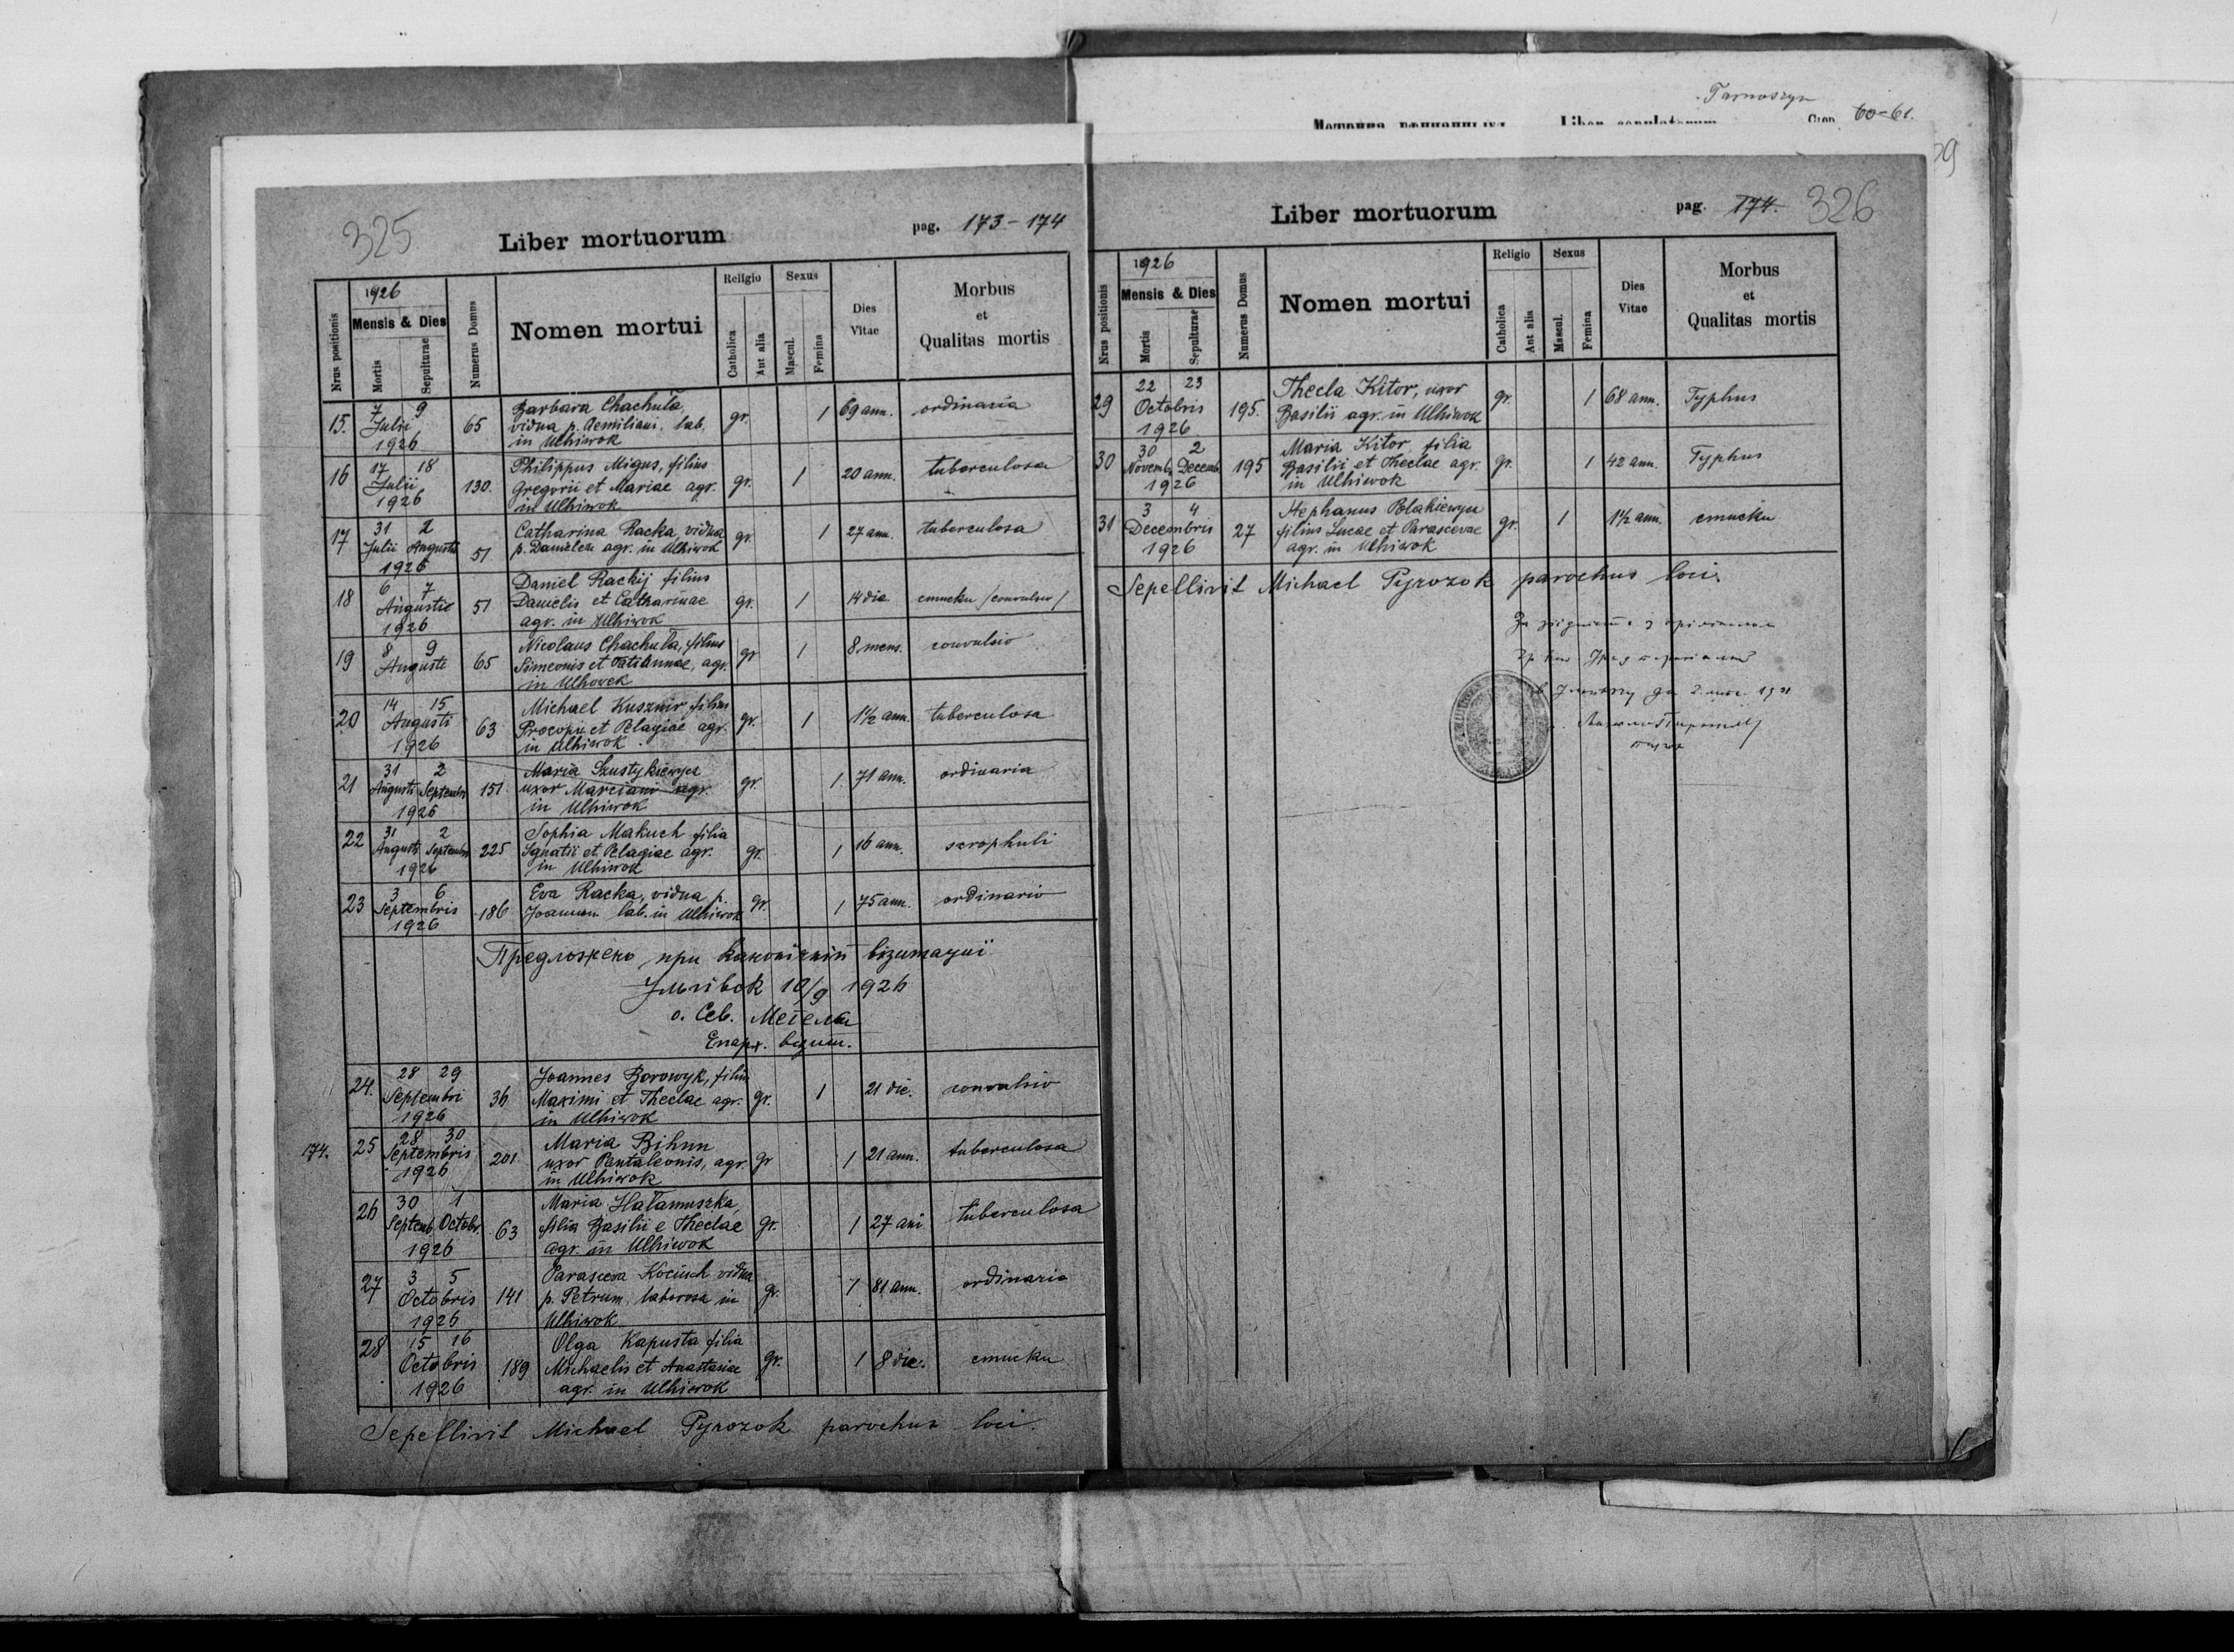 Tarnoszyn
Стор. 60-61.
325
Liber mortuorum
pag. 173-174
Nrus positionis
1926
Mensis & Dies
Mortis
Sepulturae
Numerus Domus
Nomen mortui
Religio
Catholica
Aut alia
Sexus
Mascul.
Femina
Dies Vitae
Morbus
et
Qualitas mortis
15. 7 9 Julii 1926 65 Barbara Chachuła, gr. 1 69 ann. ordinaria
vidua p. Aemiliani, lab.
in Ulhiwok
16 17 18 Julii 1926 130. Philippus Migus, filius gr. 1 20 ann. tuberculosa
Gregorii et Mariae agr.
in Ulhiwok
17 31 2 Julii Augusti 1926 51. Catharina Racka, vidua gr. 1 27 ann. tuberculosa
p. Danielem agr. in Ulhiwok
18 6 7 Augusti 1926 51 Daniel Rackij filius gr. 1 14 die. смички /convulsio/
Danielis et Catharinae
agr. in Ulhiwok
19 8 9 Augusti 65 Nicolaus Chachuła, filius gr 1 8 mens. convulsio
Simeonis et Tatiannae, agr.
in Ulhovek
20 14 15 Augusti 1926 63 Michael Kusznir filius gr. 1 1½ ann. tuberculosa
Procopii et Pelagiae agr.
in Ulhiwok
21 31 2 Augusti Septembr 1926 151. Maria Szustykiewycz gr. 1. 71 ann. ordinaria
uxor Marciani agr.
in Ulhiwok
22 31 2 Augusti Septembr 1926 225 Sophia Makuch filia gr. 1 16 ann. scrophuli
Ignatii et Pelagiae agr.
in Ulhiwok
23 3 6 Septembris 1926 186 Eva Racka, vidua p. gr. 1 75 ann. ordinario
Joannem lab. in Ulhiwok
Предложено при канонічній візитації
Угнівок 10/9 1926
о. Сев. Метелла
Епарх. візит.
24. 28 29 Septembri 1926 36 Joannes Borowyk, filius gr. 1 21 die. convulsio
Maximi et Theclae agr.
in Ulhiwok
174. 25 28 30 Septembris 1926 201 Maria Bihun gr 1 21 ann. tuberculosa
uxor Pantaleonis, agr.
in Ulhiwok
26 30 1 Septemb. Octobr. 1926 63 Maria Hałamuszka, gr. 1 27 ani tuberculosa
filia Basilii e Theclae
agr. in Ulhiwok
27 3 5 Octobris 1926 141 Parasceva Kociuch vidua gr. 1 81 ann. ordinaria
p. Petrum, laborosa in
Ulhiwok
28 15 16 Octobris 1926 189 Olga Kapusta filia gr. 1 8 die. смички
Michaelis et Anastasiae
agr. in Ulhiwok
Sepellivit Michael Pyrozok parochus loci.
Liber mortuorum
pag. 174. 326
Nrus positionis
1926
Mensis & Dies
Mortis
Sepulturae
Numerus Domus
Nomen mortui
Religio
Catholica
Aut alia
Sexus
Mascul.
Femina
Dies Vitae
Morbus
et
Qualitas mortis
29 22 23 Octobris 1926 195. Thecla Kitor, uxor gr. 1 68 ann. Typhus
Basilii agr. in Ulhiwok
30 30 2 Novemb. Decemb. 1926 195 Maria Kitor, filia gr. 1 42 ann. Typhus
Basilii et Theclae agr.
in Ulhiwok
31 3 4 Decembris 1926 27 Stephanus Połakiewycz gr. 1 1½ ann. смички
filius Lucae et Parascevae
agr. in Ulhiwok
Sepellivit Michael Pyrozok parochus loci.